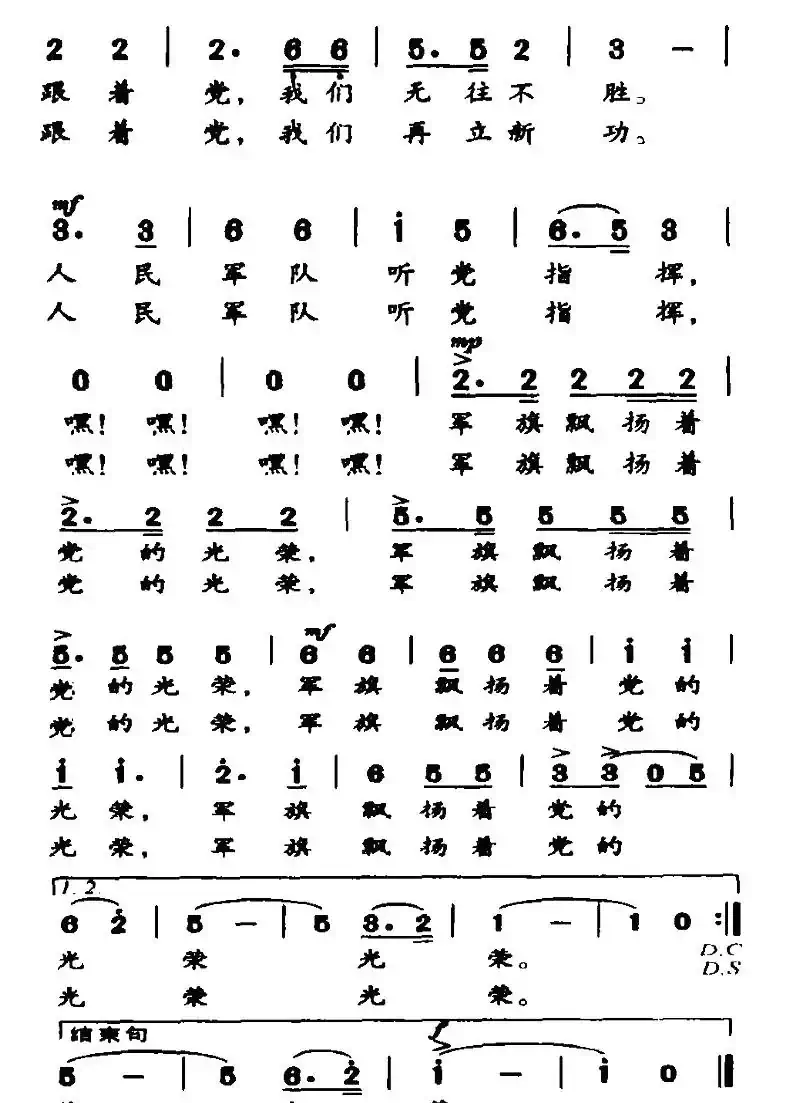 2 2 | 2. 6 6 | 5. 5 2 | 3 — |
跟 着 党，我 们 无 往 不 胜。
跟 着 党，我 们 再 立 新 功。
mf
3. 3 | 6 6 | i 5 | 6. 5 3 |
人 民 军 队 听 党 指 挥，
人 民 军 队 听 党 指 挥，
mp
0 0 | 0 0 | 2. 2 2 2 2 |
嘿！嘿！嘿！嘿！军 旗 飘 扬 着
嘿！嘿！嘿！嘿！军 旗 飘 扬 着
2. 2 2 2 | 5. 5 5 5 5 |
党 的 光 荣，军 旗 飘 扬 着
党 的 光 荣，军 旗 飘 扬 着
mf
5. 5 5 5 | 6 6 | 6 6 6 | i i |
党 的 光 荣，军 旗 飘 扬 着 党 的
党 的 光 荣，军 旗 飘 扬 着 党 的
i i. | 2. i | 6 5 5 | 3 3 0 5 |
光 荣，军 旗 飘 扬 着 党 的
光 荣，军 旗 飘 扬 着 党 的
1. 2.
6 2 | 5 — | 5 3. 2 | 1 — | 1 0 :||
D.C
D.S
光 荣 光 荣。
光 荣 光 荣。
结束句
f
5 — | 5 6. 2 | i — | i 0 ||